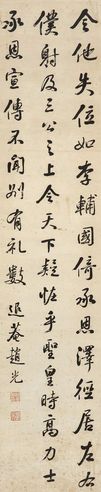 令他失位如李輔國倚承恩澤徑居左右
僕射及三公之上令天下疑怪乎聖皇時高力士
承恩宣傳不聞別有礼數 退菴趙光